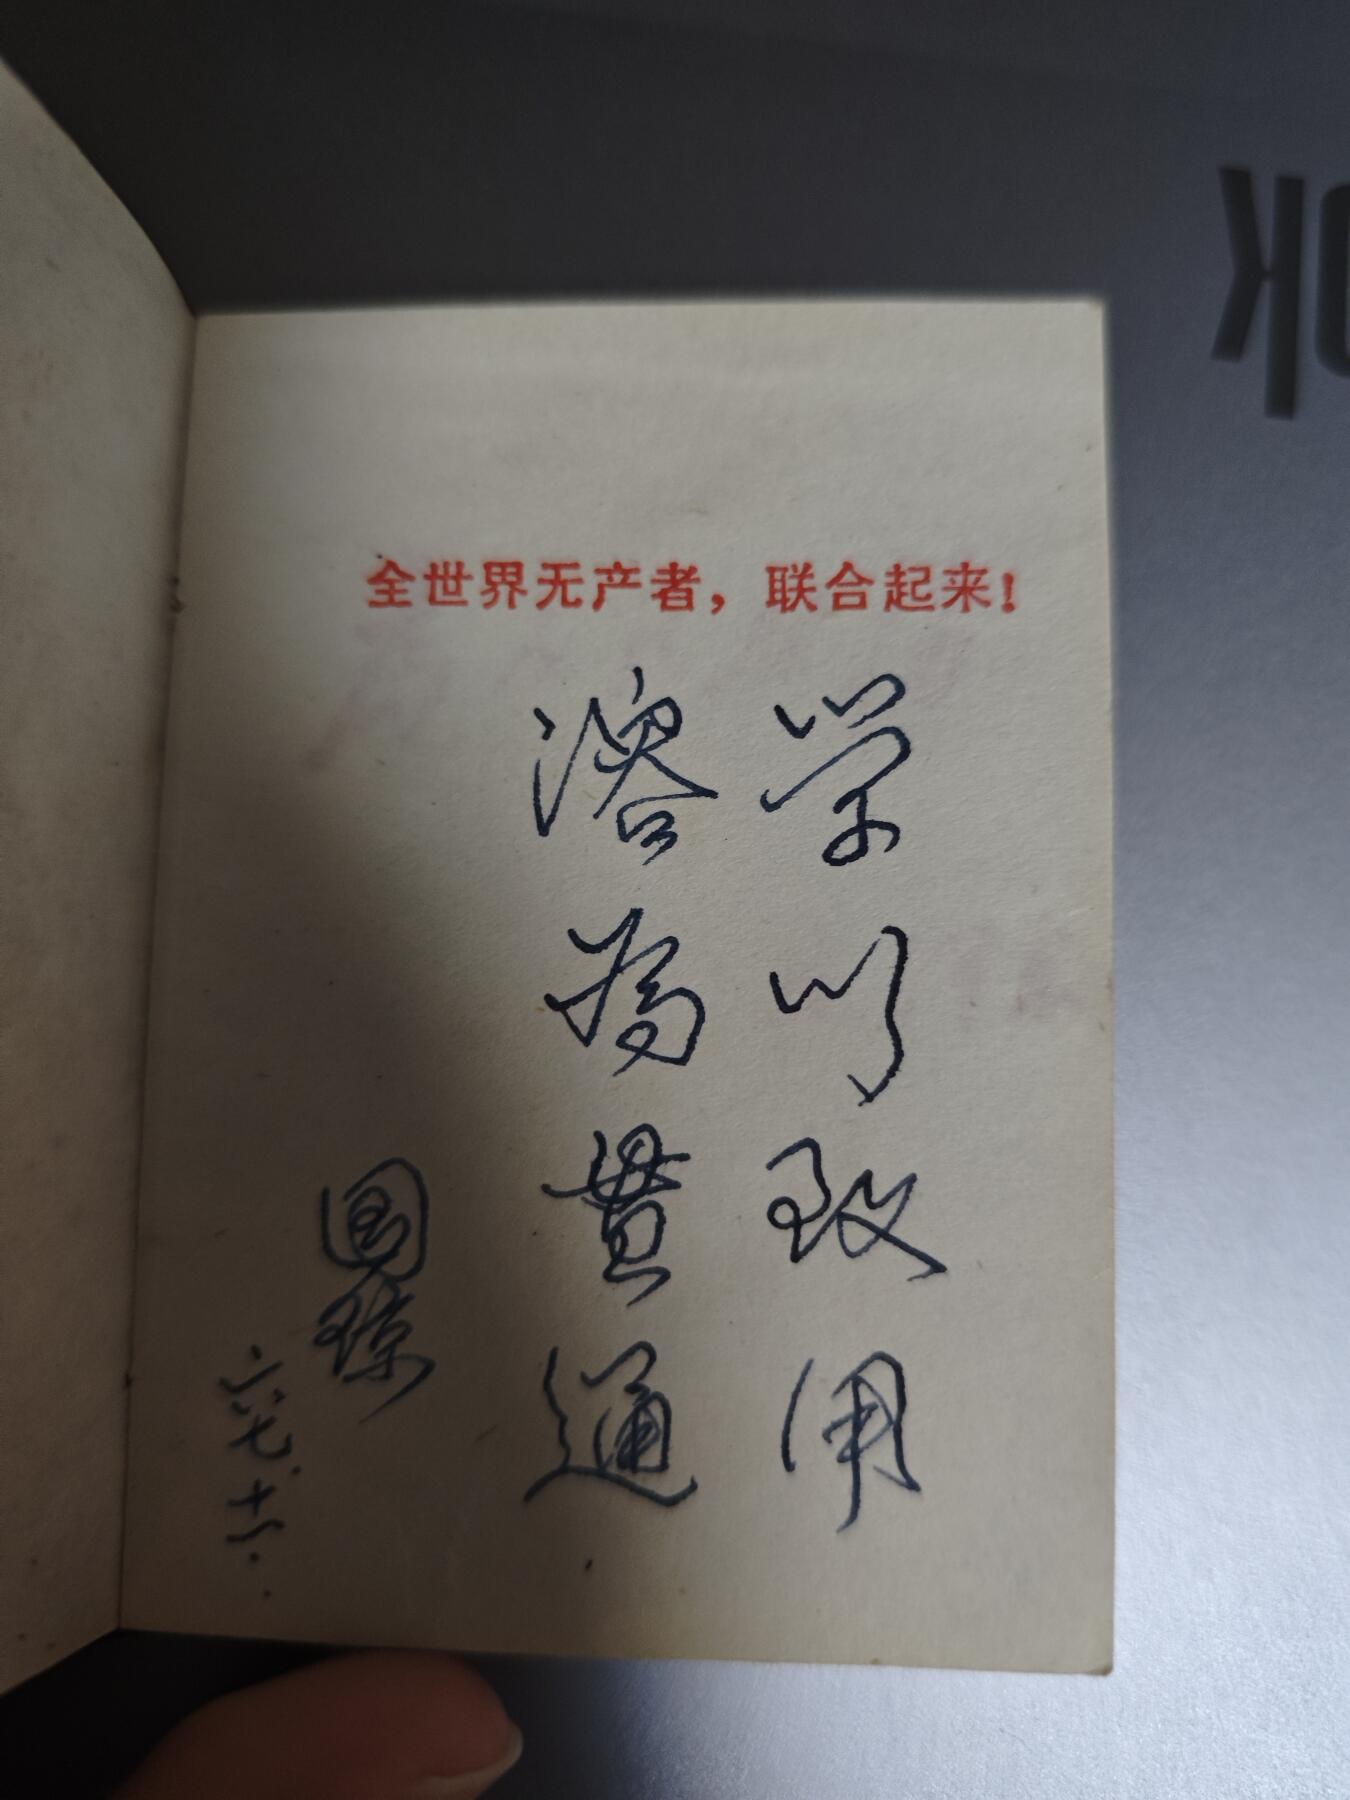 全世界无产者，联合起来！
学以致用
溶为贯通
国琼
六七.十一.
OK